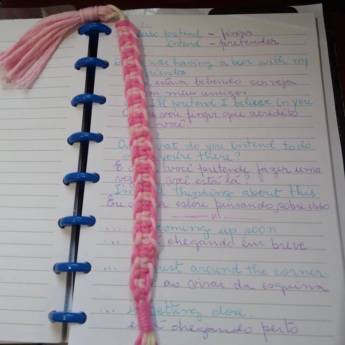 pretend - finja
intend - pretender
was having a beer with my
friends
estava bebendo cerveja
com meus amigos
I'll pretend I believe in you
que acredito
você
what do you intend to do
you're there?
você pretende fazer uma
você está lá?
thinking about this
Eu estou pensando sobre isso
coming up soon
chegando em breve
just around the corner
ao virar da esquina
getting close
está chegando perto